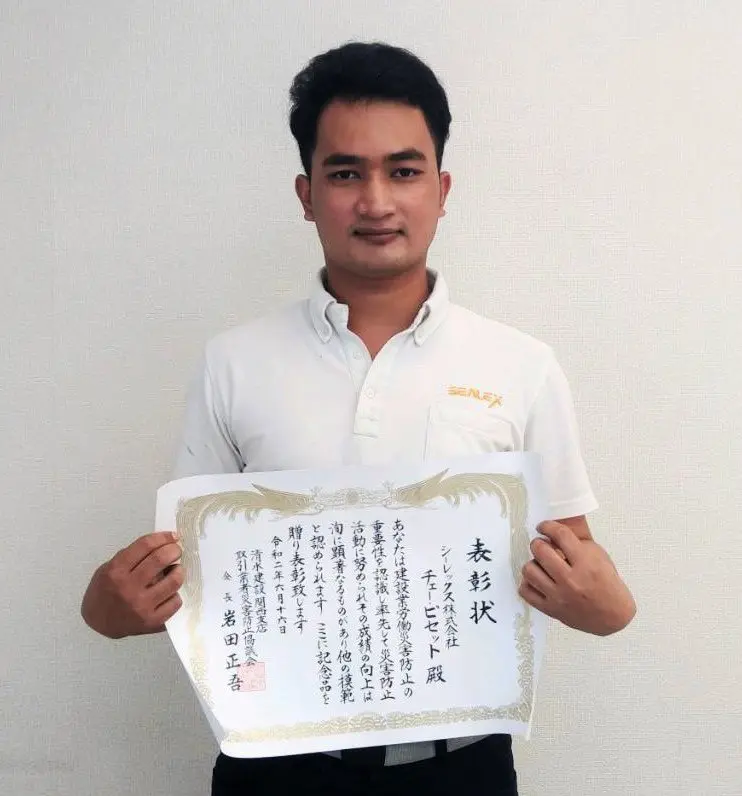 SEALEX
表彰状
シーレックス株式会社
チュービセット 殿
あなたは建設業労働災害防止の
重要性を認識し率先して災害防止
活動に努められその成績の向上は
洵に顕著なるものがあり他の模範
と認められます ここに記念品を
贈り表彰致します
令和二年六月十六日
清水建設関西支店
取引業者災害防止協議会
会長 岩田正吾